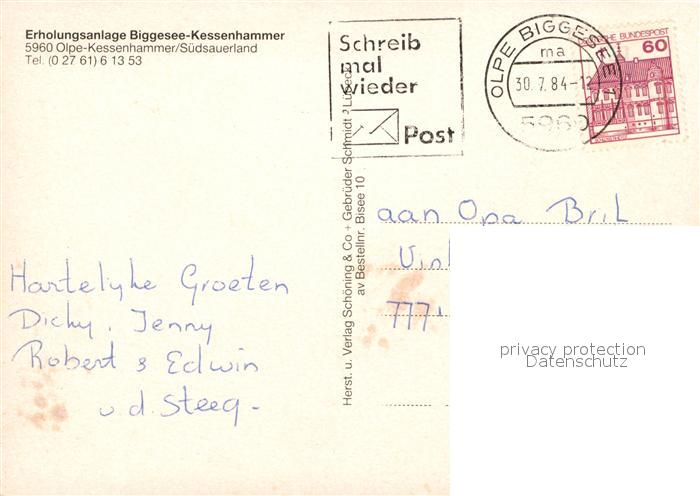 Erholungsanlage Biggesee-Kessenhammer
5960 Olpe-Kessenhammer/Südsauerland
Tel. (0 27 61) 6 13 53
Schreib
mal
wieder
Post
OLPE BIGGESEE 1
ma
30.7.84-12
5960
DEUTSCHE BUNDESPOST
60
Herst. u. Verlag Schöning & Co + Gebrüder Schmidt · Lübeck
av Bestellnr. Bisee 10
aan Opa Bril
Vin
777
Hartelyke Groeten
Dicky, Jenny
Robert & Edwin
v.d. Steeg-
privacy protection
Datenschutz